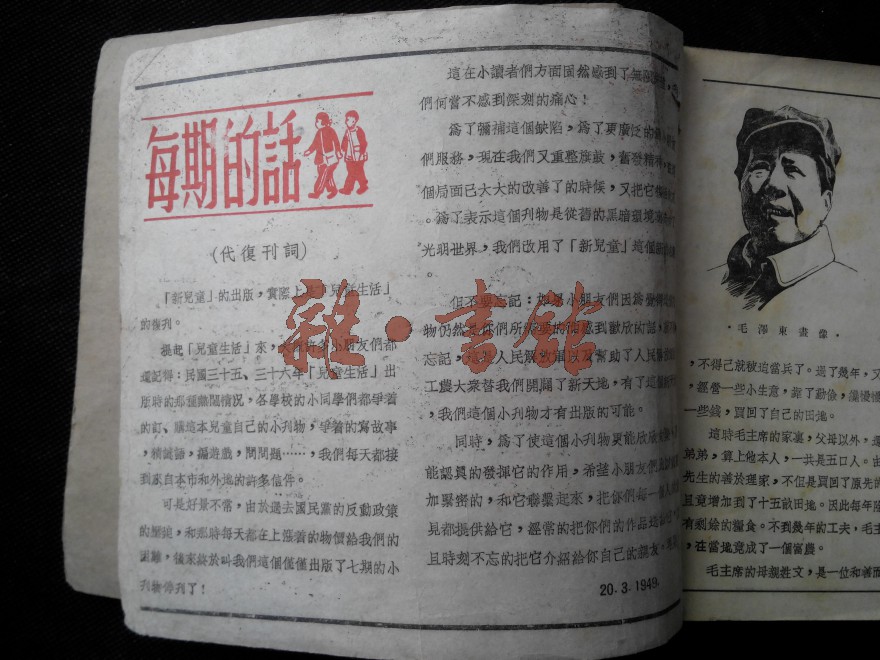 每期的話
(代復刊詞)
「新兒童」的出版，實際上是「兒童生活」
的復刊。
提起「兒童生活」來，許多小朋友們都
還記得：民國三十五、三十六年「兒童生活」出
版時的那種熱鬧情况，各學校的小同學們都爭着
的訂、購這本兒童自己的小刊物，爭着的寫故事
，猜謎語，編遊戲，問問題……，我們每天都接
到來自本市和外地的許多信件。
可是好景不常，由於過去國民黨的反動政策
的壓迫，和那時每天都在上漲着的物價給我們的
困難，後來終於叫我們這個僅僅出版了七期的小
刊物停刊了！
這在小讀者們方面固然感到了無限
們何嘗不感到深刻的痛心！
爲了彌補這個缺陷，爲了更廣泛的
們服務，現在我們又重整旗鼓，奮發精神，
個局面已大大的改善了的時候，又把它
。爲了表示這個刊物是從舊的黑暗環境
光明世界，我們改用了「新兒童」這個
。
但不要忘記：如果小朋友們因爲覺得
物仍然是你們所需要的而感到歡欣的話，
忘記，這是人民解放軍以及幫助了人民
工農大衆替我們開闢了新天地，有了這
，我們這個小刊物才有出版的可能。
同時，爲了使這個小刊物更能欣欣
能認眞的發揮它的作用，希望小朋友們
加緊密的，和它聯繫起來，把你們每一個
見都提供給它，經常的把你們的作品
且時刻不忘的把它介紹給你自己的親友。
20.3.1949.
雜·書館
·毛澤東畫像·
，不得己就被這當兵了。過了幾年，又
，經營一些小生意，靠了勤儉，慢慢
一些錢，買回了自己的田地。
這時毛主席的家裏，父母以外，還
弟弟，算上他本人，一共是五口人。由
先生的善於理家，不但是買回了原先的
且竟增加到了十五畝田地。因此每年除
有剩餘的糧食。不到幾年的工夫，毛主
，在當地竟成了一個富農。
毛主席的母親姓文，是一位和善而